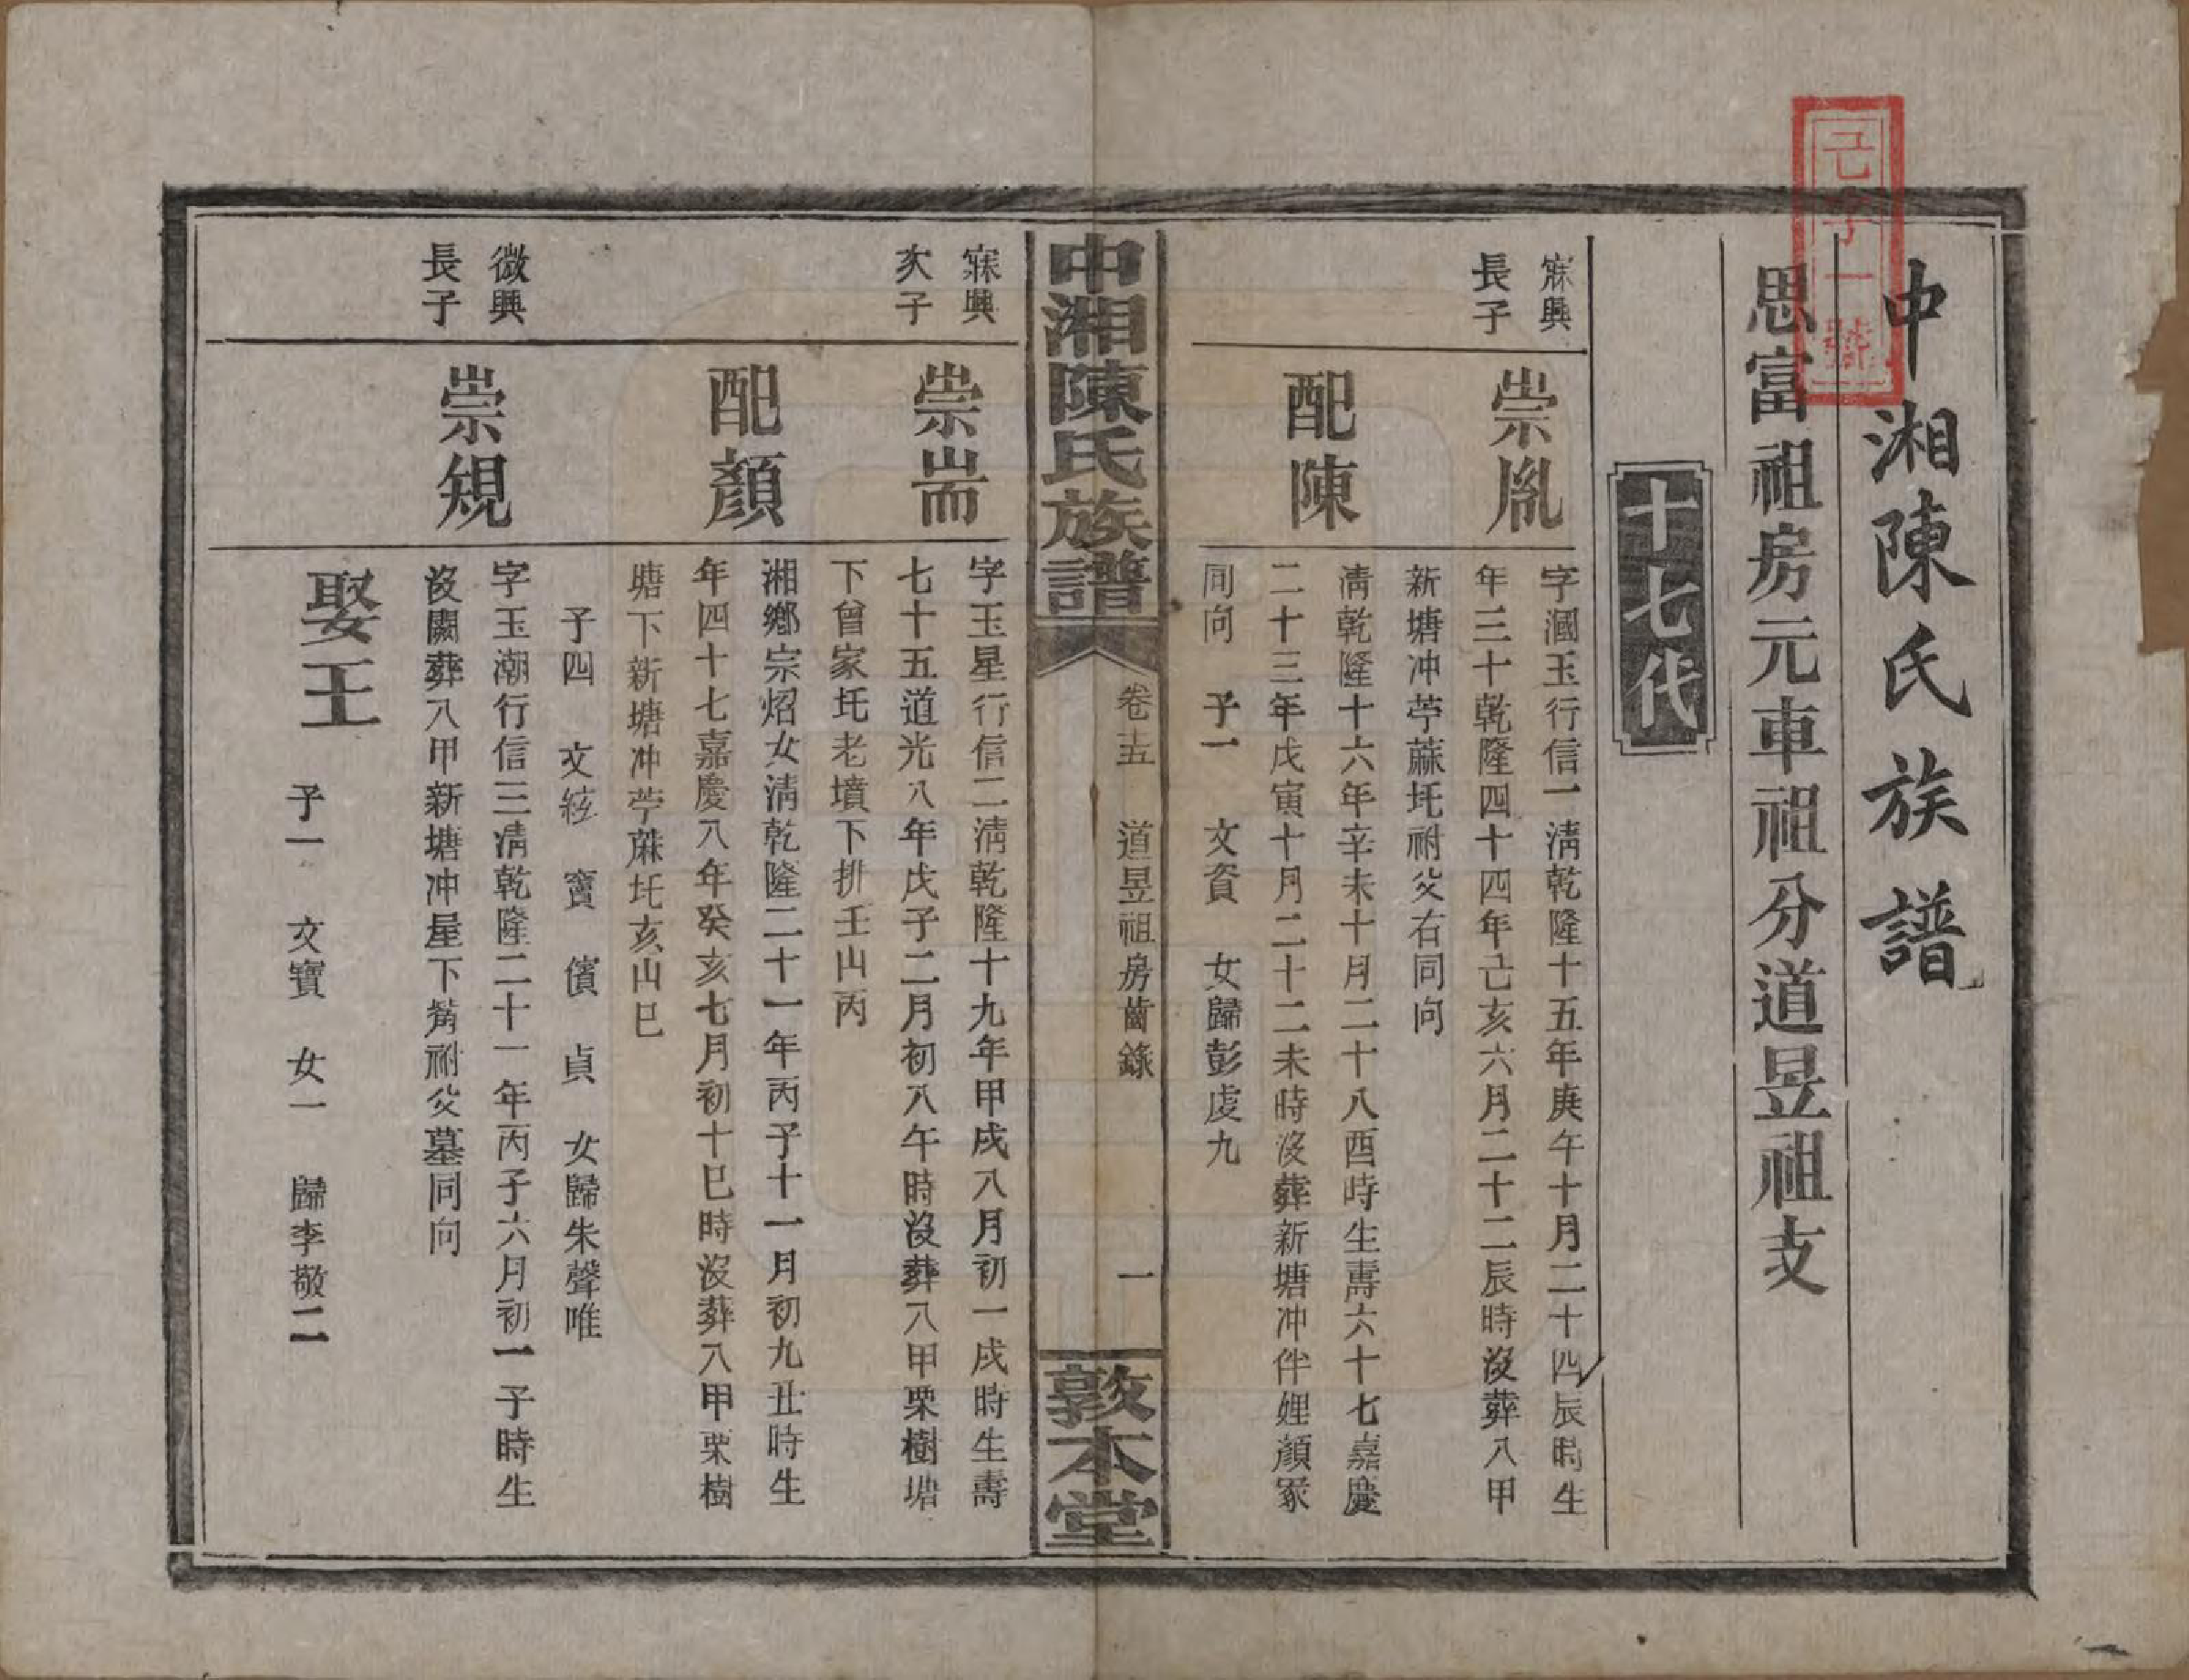 己字一號
中湘陳氏族譜
思富祖房元車祖分道昱祖支
十七代
寐興
長子
崇胤
字涸玉行信一淸乾隆十五年庚午十月二十四辰時生
年三十乾隆四十四年己亥六月二十二辰時沒葬八甲
新塘冲苧蔴圫祔父右同向
配陳
淸乾隆十六年辛未十月二十八酉時生壽六十七嘉慶
二十三年戊寅十月二十二未時沒葬新塘冲伴娌顏冢
同向 子一 文資 女歸彭虔九
中湘陳氏族譜 卷十五 道昱祖房齒錄 一 敦本堂
寐興
次子
崇耑
字玉星行信二淸乾隆十九年甲戌八月初一戌時生壽
七十五道光八年戊子二月初八午時沒葬八甲栗樹塘
下曾家圫老墳下排壬山丙
配顏
湘鄉宗炤女淸乾隆二十一年丙子十一月初九丑時生
年四十七嘉慶八年癸亥七月初十巳時沒葬八甲栗樹
塘下新塘冲苧蔴圫亥山巳
子四 文紘 寶 儐 貞 女歸朱聲唯
微興
長子
崇規
字玉潮行信三淸乾隆二十一年丙子六月初一子時生
沒闕葬八甲新塘冲屋下嘴祔父墓同向
娶王 子一 文寶 女一 歸李敬二